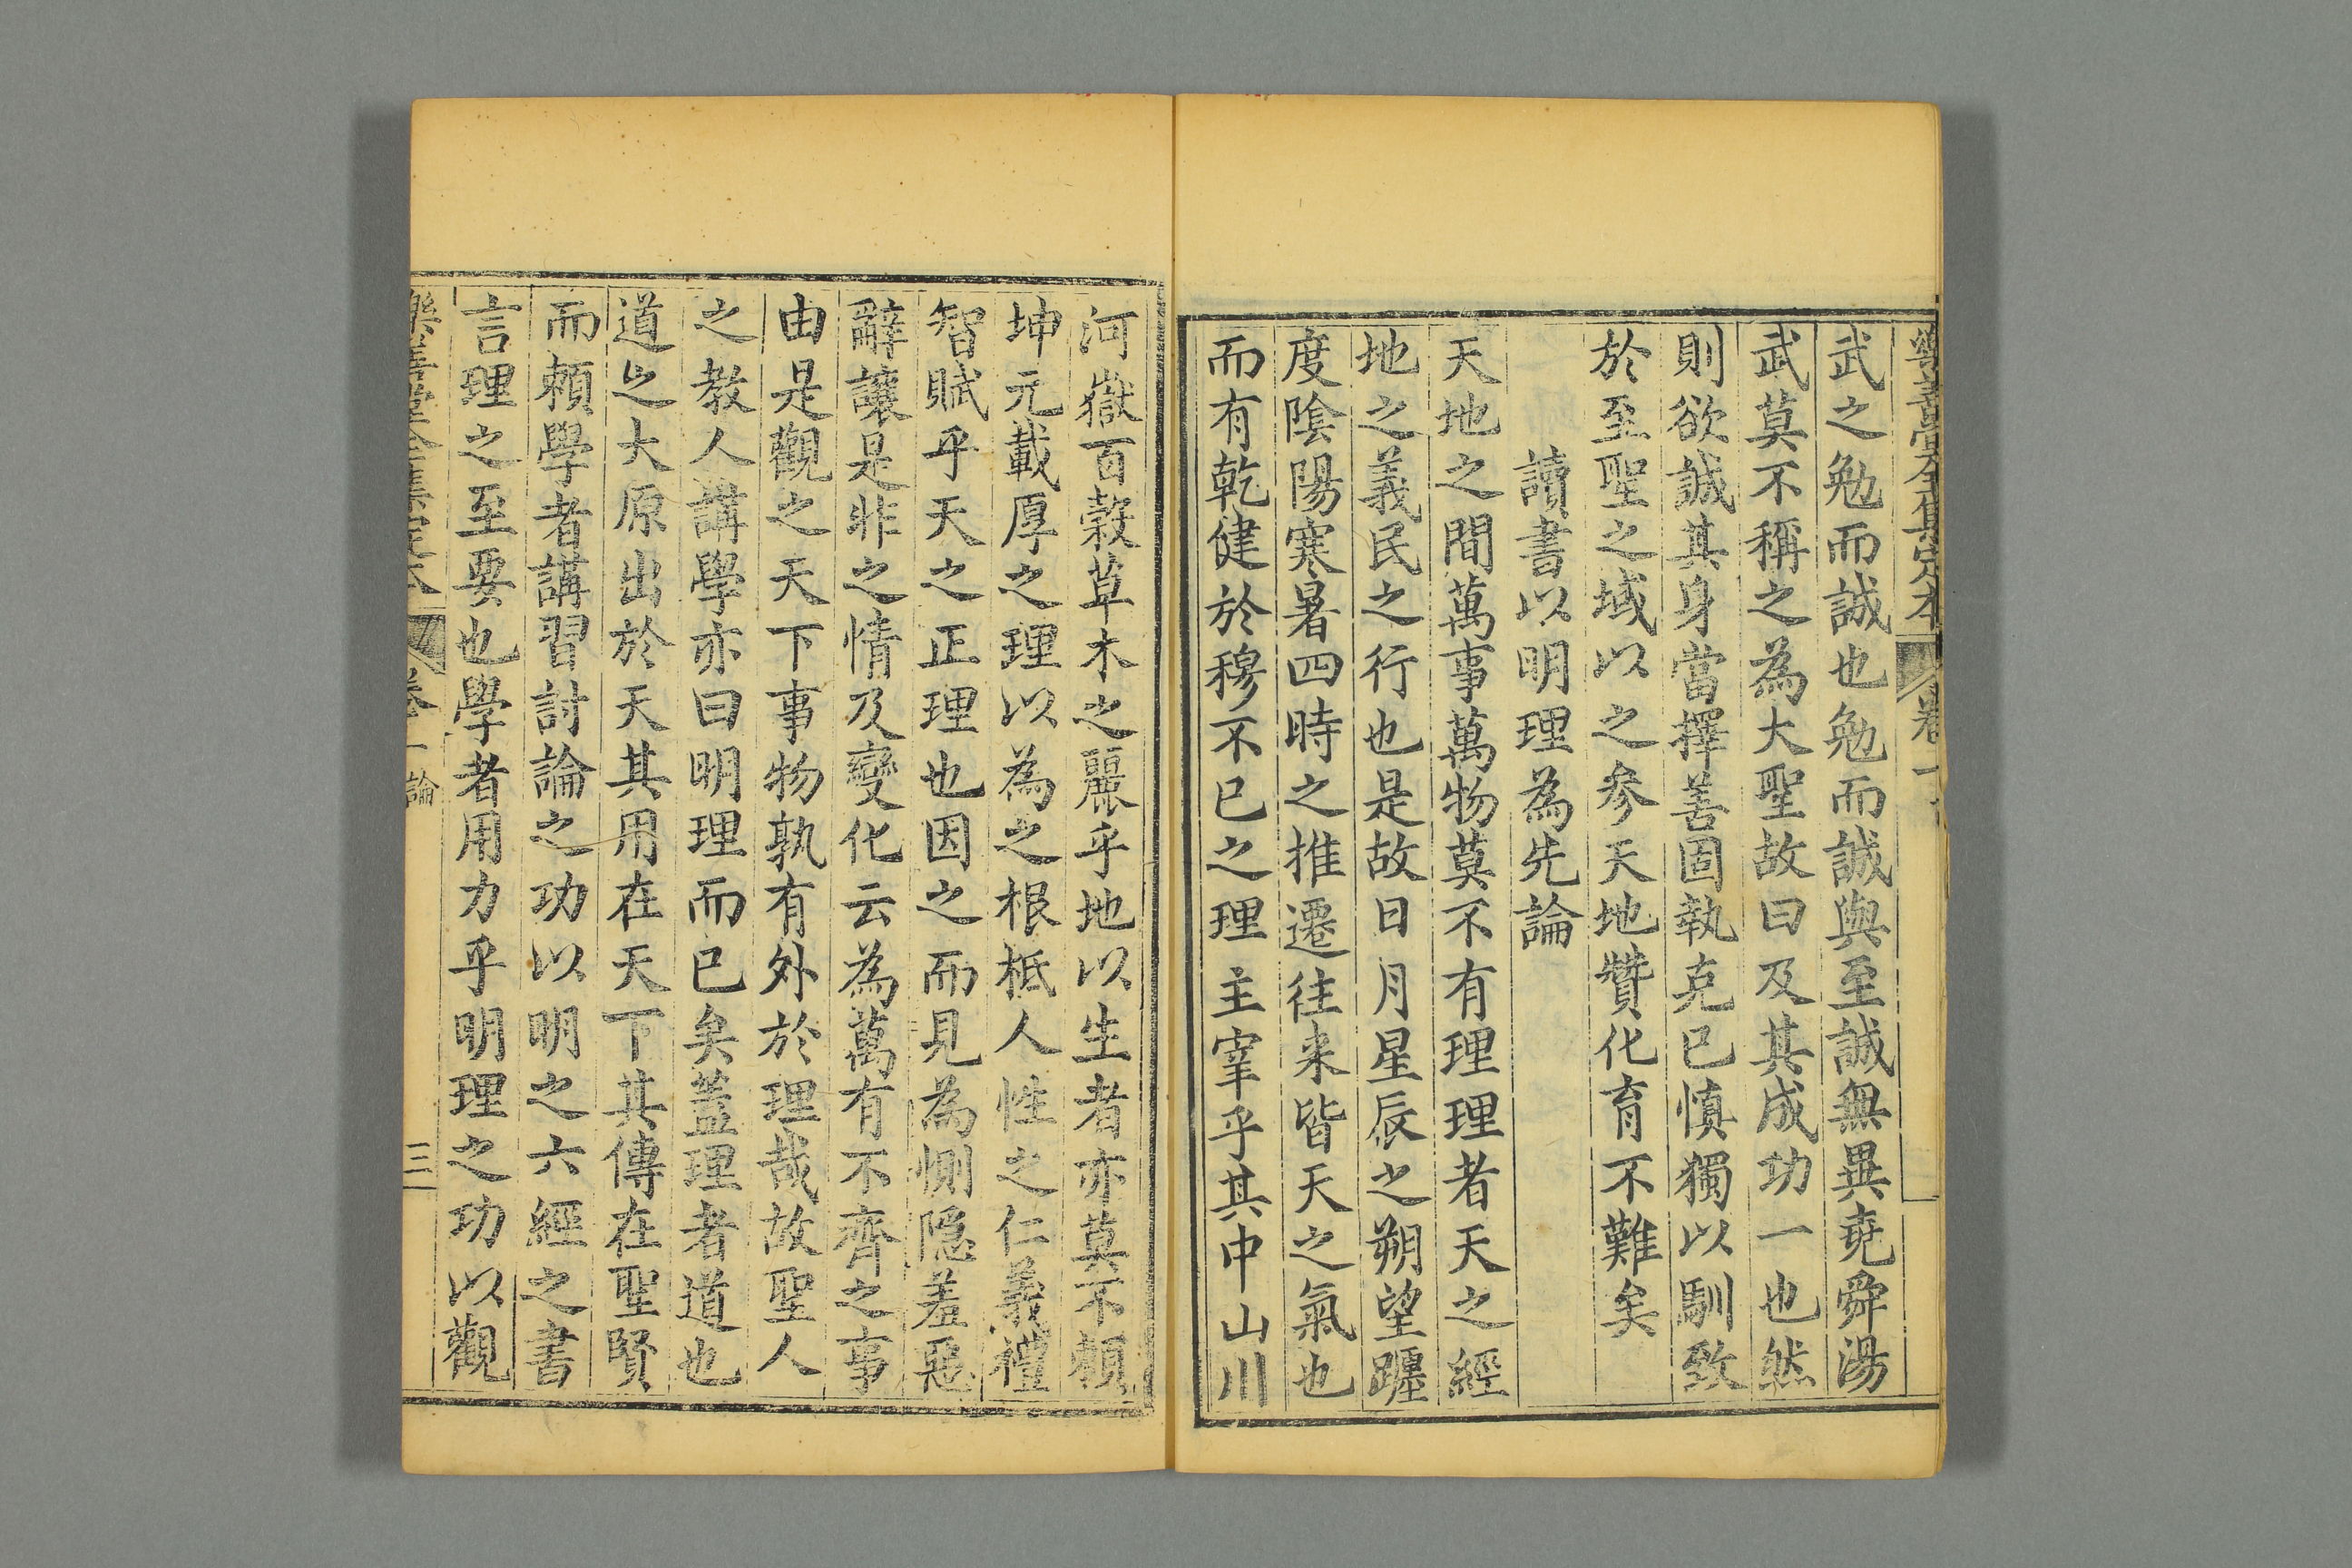 樂善堂全集定本 卷一
武之勉而誠也勉而誠與至誠無異堯舜湯
武莫不稱之為大聖故曰及其成功一也然
則欲誠其身當擇善固執克已慎獨以馴致
於至聖之域以之參天地贊化育不難矣
讀書以明理為先論
天地之間萬事萬物莫不有理理者天之經
地之義民之行也是故日月星辰之朔望躔
度陰陽寒暑四時之推遷往来皆天之氣也
而有乾健於穆不已之理主宰乎其中山川
河嶽百穀草木之麗乎地以生者亦莫不頼
坤元載厚之理以為之根柢人性之仁義禮
智賦乎天之正理也因之而見為惻隠羞惡
辭讓是非之情及變化云為萬有不齊之事
由是觀之天下事物孰有外於理哉故聖人
之教人講學亦曰明理而已矣蓋理者道也
道之大原出於天其用在天下其傳在聖賢
而頼學者講習討論之功以明之六經之書
言理之至要也學者用力乎明理之功以觀
樂善堂全集定本 卷一 論 三